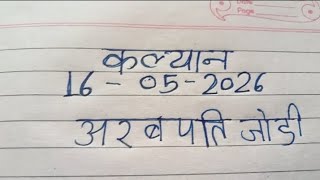 कल्यान
16 - 05 - 2026
अरबपति जोडी